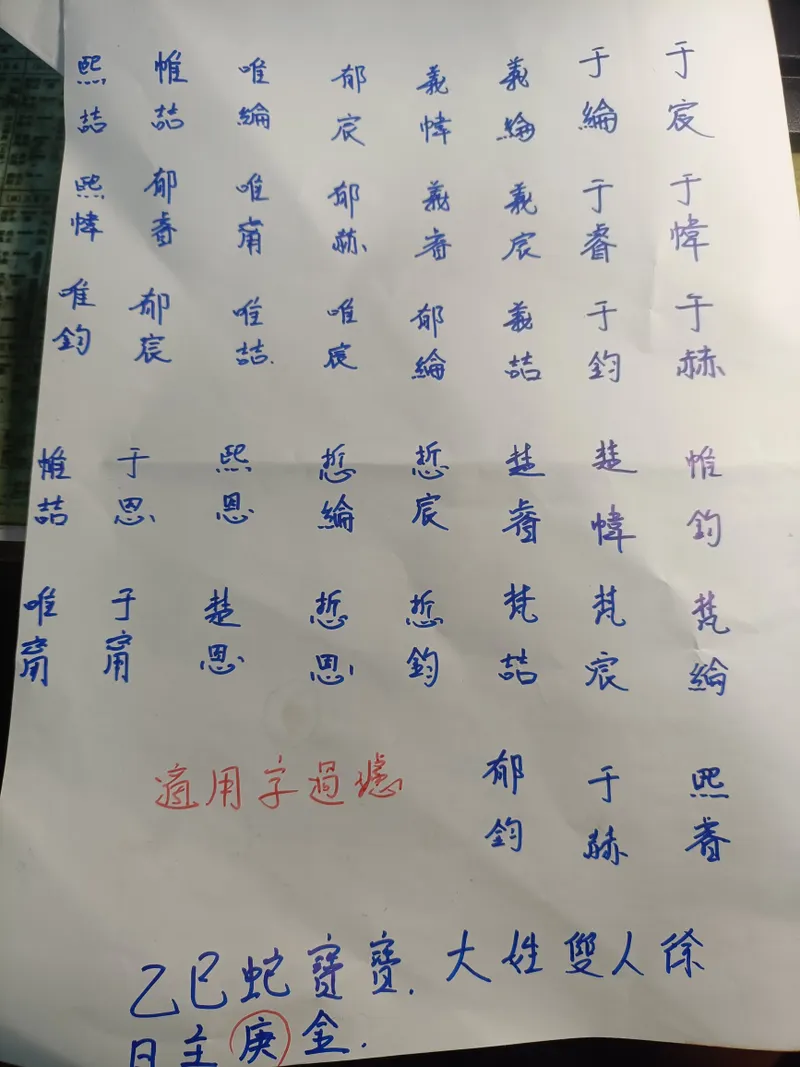 于宸
于綸
義綸
義幃
郁宸
唯綸
帷喆
熙喆
于幃
于睿
義宸
義睿
郁赫
唯甯
郁睿
熙幃
于赫
于鈞
義喆
郁綸
唯宸
唯喆
郁宸
唯鈞
帷鈞
楚幃
楚睿
悊宸
悊綸
熙恩
于恩
帷喆
梵綸
梵宸
梵喆
悊鈞
悊恩
楚恩
于甯
唯甯
熙睿
于赫
郁鈞
適用字過濾
乙巳蛇寶寶.大姓雙人徐
日主庚金.